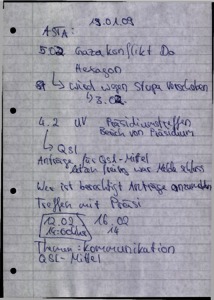 19.01.09
ASTA:
502 Gazakonflikt Do
Hexagon
↳ wird wegen Stupa verschoben
↳ 3.02
4.2 UV Präsidiumstreffen
Besuch von Präsidium
↳ QSL
Anträge für QSL-Mittel
war
Wer ist berechtigt Anträge
Treffen mit Präsi
12.09 16.02
14:00Uhr 14
Themen: Kommunikation
QSL-Mittel